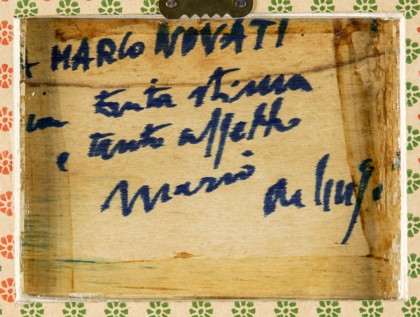 A MARCO NOVATI
con tanta stima
e tanto affetto
Mario